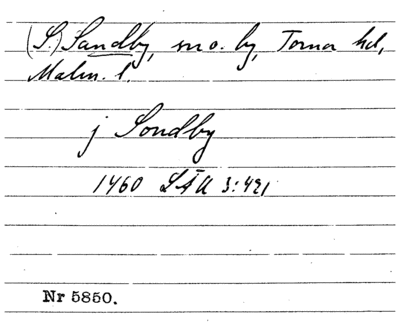 (S.) Sandby, sn o. by, Torna hd,
Malm. l.
j Sondby
1460 LÄU 3:421
Nr 5850.